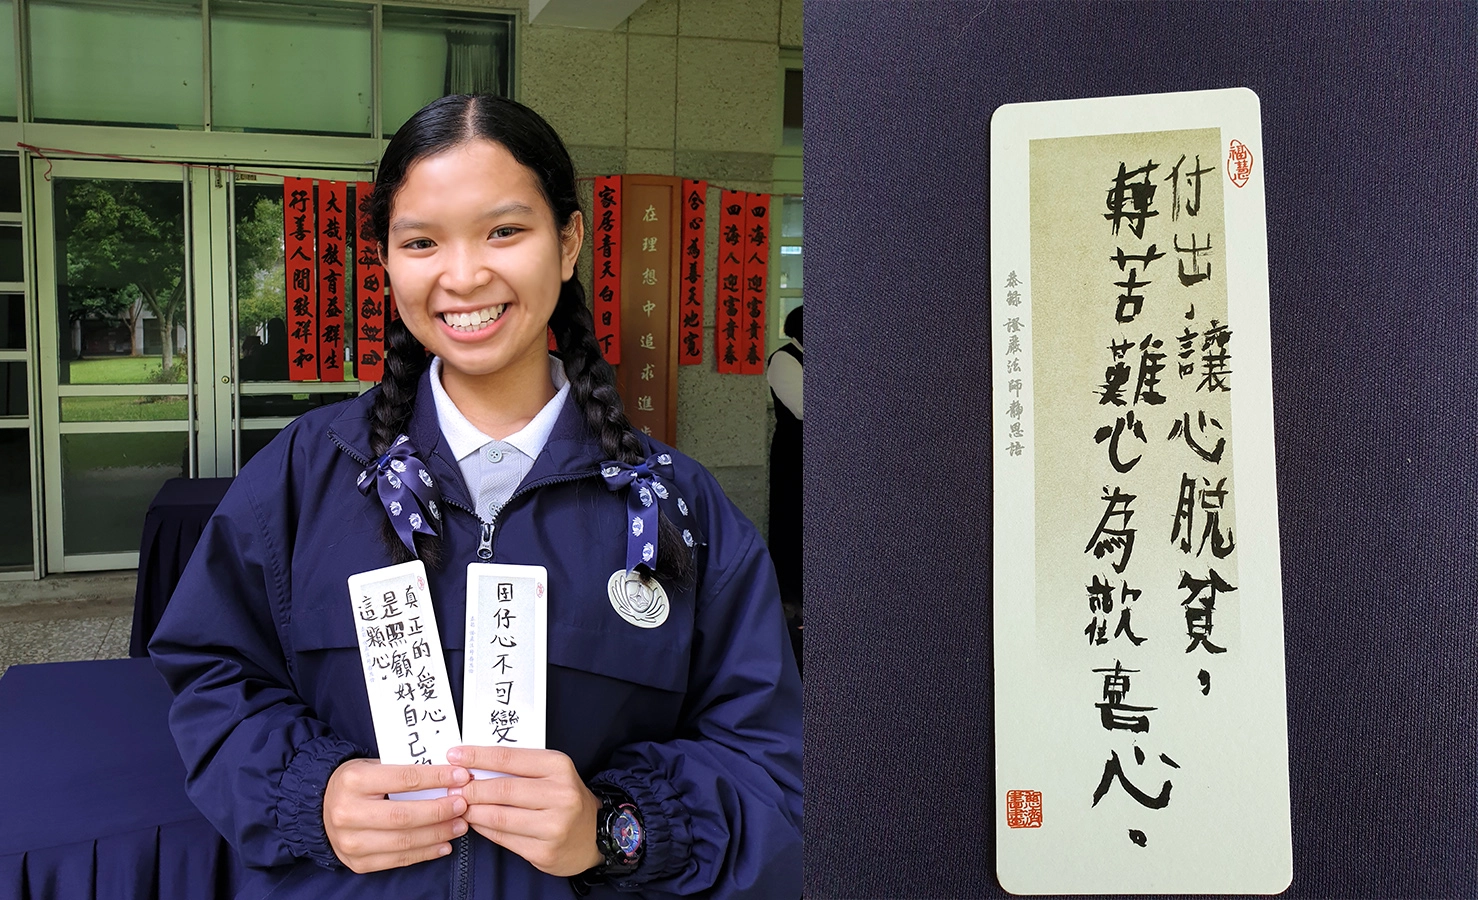 行善人間致祥和
大哉教育益群生
家居青天白日下
在理想中追求進步
合心為善天地寬
四海人迎富貴春
四海人迎富貴春
真正的愛心，
是照顧好自己的
這顆心。
囝仔心不可變
福慧
付出，讓心脫貧，
轉苦難心為歡喜心。
恭錄 證嚴法師靜思語
慈濟
書畫